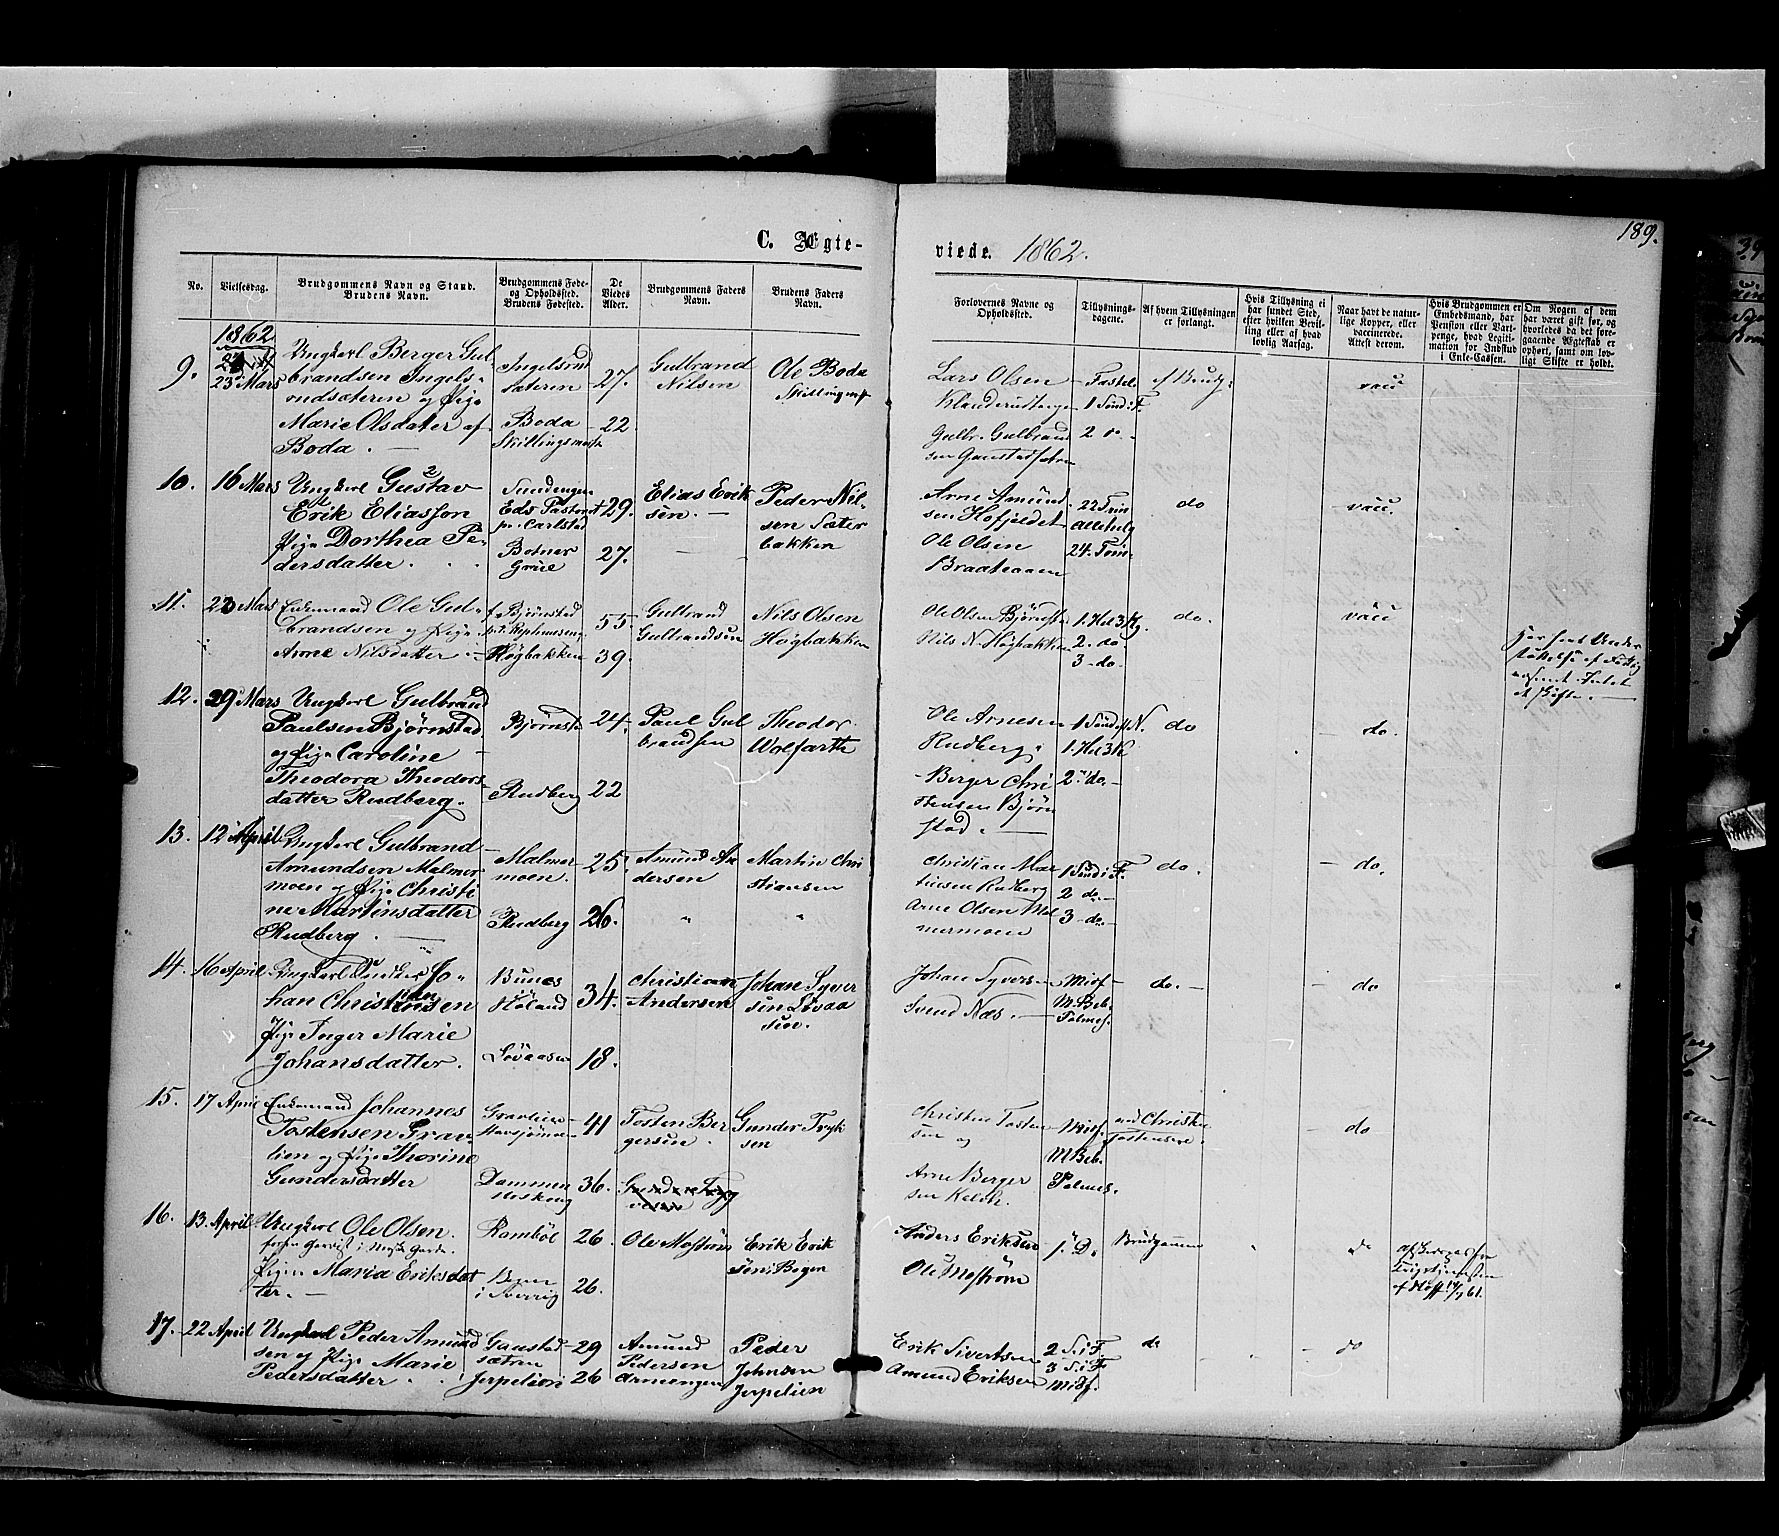 189.
C. Ægte-
viede. 1862.
No.
Vielsesdag.
Brudgommens Navn og Stand.
Brudens Navn.
Brudgommens Føde-
og Opholdssted.
Brudens Fødested.
De
Viedes
Alder.
Brudgommens Faders
Navn.
Brudens Faders
Navn.
Forlovernes Navne og
Opholdssted.
Tillysnings-
dagene.
Af hvem Tillysningen
er forlangt.
Hvis Tillysning ei
har fundet Sted,
efter hvilken Bevil-
ling eller af hvad
lovlig Aarsag.
Naar havt de natur-
lige Kopper, eller
vaccinerede.
Attest derom.
Hvis Brudgommen er
Embedsmand, har
Pension eller Vart-
penge, hvad Legiti-
mation for Indskud
i Enke-Cassen.
Om Nogen af dem
har været gift før, og
hvorledes da det fore-
gaaende Ægteskab er
ophørt, samt om lov-
ligt Skifte er holdt.
1862
9. 23 Mars
Ungkarl Berger Gul-
brandsen Ingels-
rudsæteren og Pige
Marie Olsdatter af
Boda. —
Ingelsrud
sæteren
Boda
Skillingsmark
27.
22
Gulbrand
Nilsen
Ole Boda
Skillingmk
Lars Olsen
Gulbr. Gulbrand
sen Gaustadsætrn
Fastel.
1 Sønd: F.
2 do -
af Brudg:
vacc
10. 16 Mars
Ungkarl Gustav
Erik Eliasson
Pige Dorthea Pe-
dersdatter.
Eds Pastorat
pr. Carlstad
Botner
Grue
29.
27.
Elias Erik
sen. —
Peder Nil-
sen Sæter
bakken
Arne Amund
sen Hofjeldet
Ole Olsen
Braateaaen
22 Trin
Allehelg
24. Trin
do
vacc.
11. 23 Mars
Enkemand Ole Gul-
brandsen og Pige
Arne Nilsdatter. —
f. Bjørnstad
Høgbakken
55
39.
Gulbrand
Gulbrandsen
Nils Olsen
Høgbakken
Ole Olsen Bjørnsta
Nils N. Høgbakken
1. Hel 3 Kg.
2. do.
3 - do.
do.
vacc
12. 29 Mars
Ungkarl Gulbrand
Paulsen Bjørnstad
og Pige Caroline
Theodora Theodors-
datter Rudberg.
Bjørnst.
Rudberg
24.
22
Paul Gul
brandsen
Theodor
Wolfarth
Ole Arnesen
Rudberg.
Berger Chri
stensen Bjørn
stad. —
1 Sønd eft N.
1. Hel 3 K
2. do. -
do
do.
13. 12 April
Ungkarl Gulbrand
Amundsen Malmer-
moen og Pige Christi
ne Martinsdatter
Rudberg. —
Malmer
moen.
Rudberg
25.
26.
Amund An
dersen
"
Martin Chri
stiansen
"
Christian Mar
tinsen Rudberg
Arne Olsen Mal
mermoen
1 Sønd i F.
2 do. -
3 - do. -
do.
do.
14. 16 April
Ungkarl Jo-
han Christiansen
Pige Inger Marie
Johansdatter.
Bunes
Høland
Løvaasen
34.
18.
Christian
Andersen
Johan Syver
sen Løvaa
sen.
Johan Syvers-
Svend Næs. —
Midf
M. Beb.
Palmes.
do. -
do
15. 17 April
Enkemand Johannes
Tostensen Grav
lien og Pige Thorine
Gundersdatter
Gravlien
Dammen
41
36.
Tosten Ber
gersen.
Gunder Tryk
sen
Christen Tosten
sen og
Arne Berger
sen
Midf.
M Beb.
Palmes.
ved Christen
Tostensen.
do
16. 13. April
Ungkarl Ole Olsen.
Pigen Maria Eriksdat
ter. —
Rambøl
i Sverrig
26.
26.
Ole Mostrøm
Erik Erik
sen, Bogen
Anders Eriksen
Ole Mostrøm
Brudgommen
do
17. 22 April
Ungkarl Peder Amund
sen og Pige Marie
Pedersdatter.
Gaustad-
sætren
Jerpelien
29
26
Amund
Pedersen
Peder
Johnsen
Jerpelien
Erik Sivertsen
Amund Eriksen
2 S. i F.
3 S. i F.
Midf.
do
do